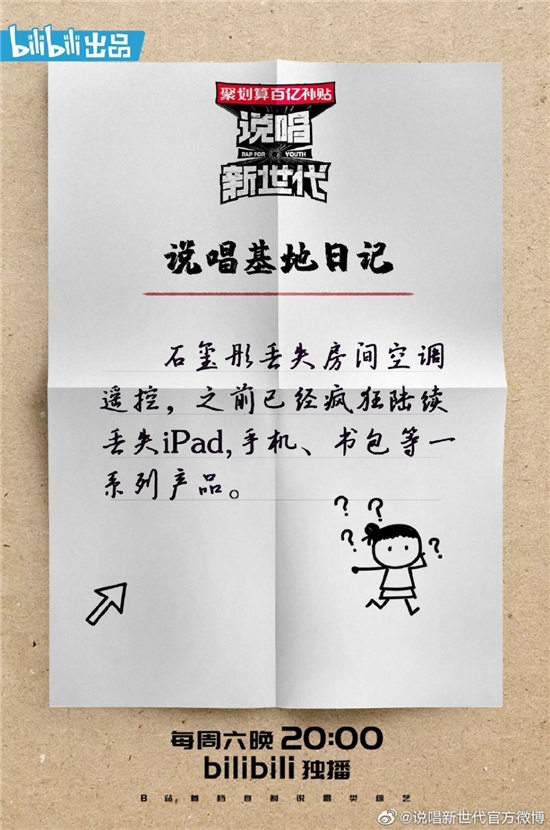 bilibili 出品
聚划算百亿补贴
说唱
RAP FOR YOUTH
新世代
说唱基地日记
石玺彤丢失房间空调
遥控，之前已经疯狂陆续
丢失iPad,手机、书包等一
系列产品。
? ?
? ?
每周六晚 20:00
bilibili 独播
B站首档自制说唱类综艺
@说唱新世代官方微博